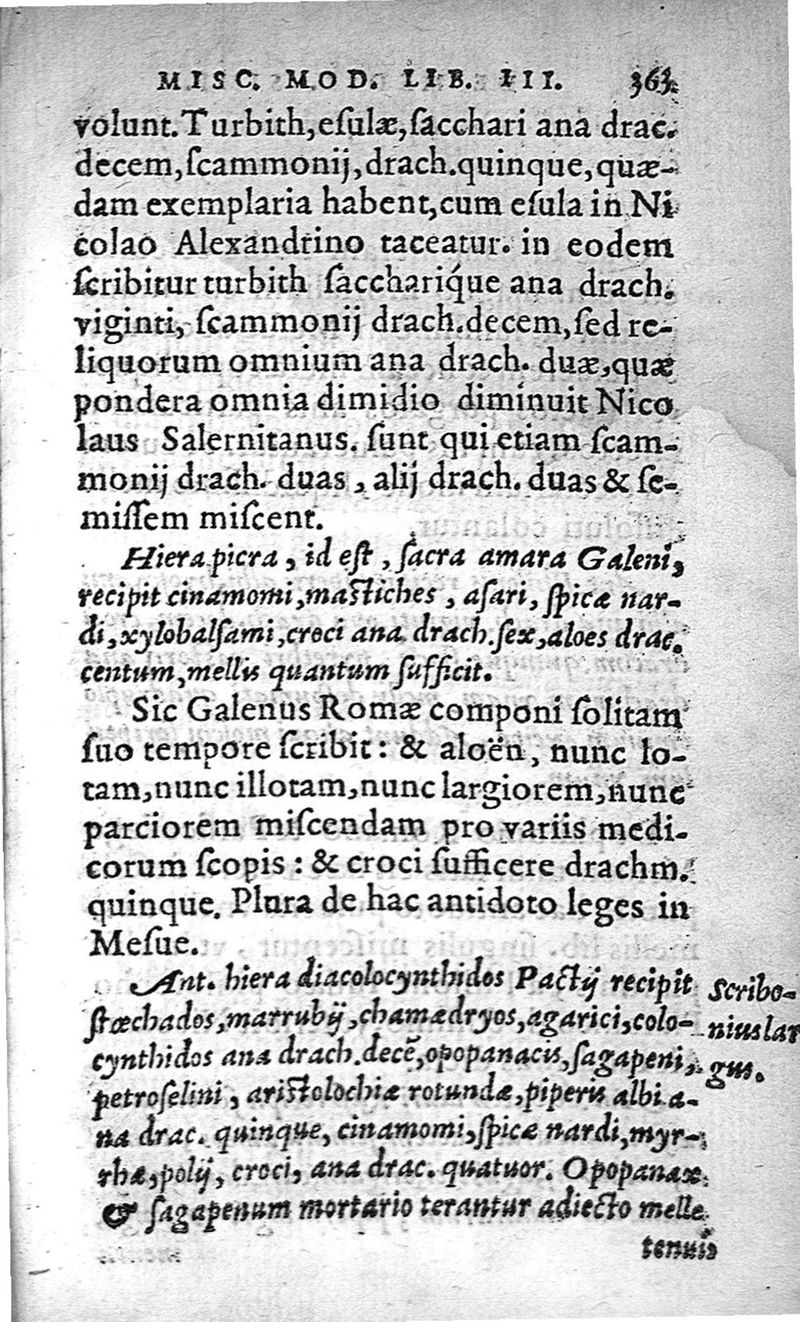 MISC. MOD. LIB. III. 363.
volunt. Turbith, esulæ, sacchari ana drac.
decem, scammonij, drach. quinque, quæ-
dam exemplaria habent, cum esula in Ni
colao Alexandrino taceatur. in eodem
scribitur turbith sacchariq́ue ana drach.
viginti, scammonij drach. decem, sed re-
liquorum omnium ana drach. duæ, quæ
pondera omnia dimidio diminuit Nico
laus Salernitanus. sunt qui etiam scam-
monij drach. duas, alij drach. duas & se-
missem miscent.
Hiera picra, id est, sacra amara Galeni,
recipit cinamomi, mastiches, asari, spicæ nar-
di, xylobalsami, croci ana drach. sex, aloes drac.
centum, mellis quantum sufficit.
Sic Galenus Romæ componi solitam
suo tempore scribit: & aloën, nunc lo-
tam, nunc illotam, nunc largiorem, nunc
parciorem miscendam pro variis medi-
corum scopis: & croci sufficere drachm.
quinque. Plura de hac antidoto leges in
Mesue.
Ant. hiera diacolocynthidos Pactij recipit
stœchados, marrubij, chamædryos, agarici, colo-
cynthidos ana drach. decē, opopanacis, sagapeni,
petroselini, aristolochiæ rotundæ, piperis albi a-
na drac. quinque, cinamomi, spicæ nardi, myr-
rhæ, polij, croci, ana drac. quatuor. Opopanax
& sagapenum mortario terantur adiecto melle
tenuis
Scribo-
nius lar
gus.